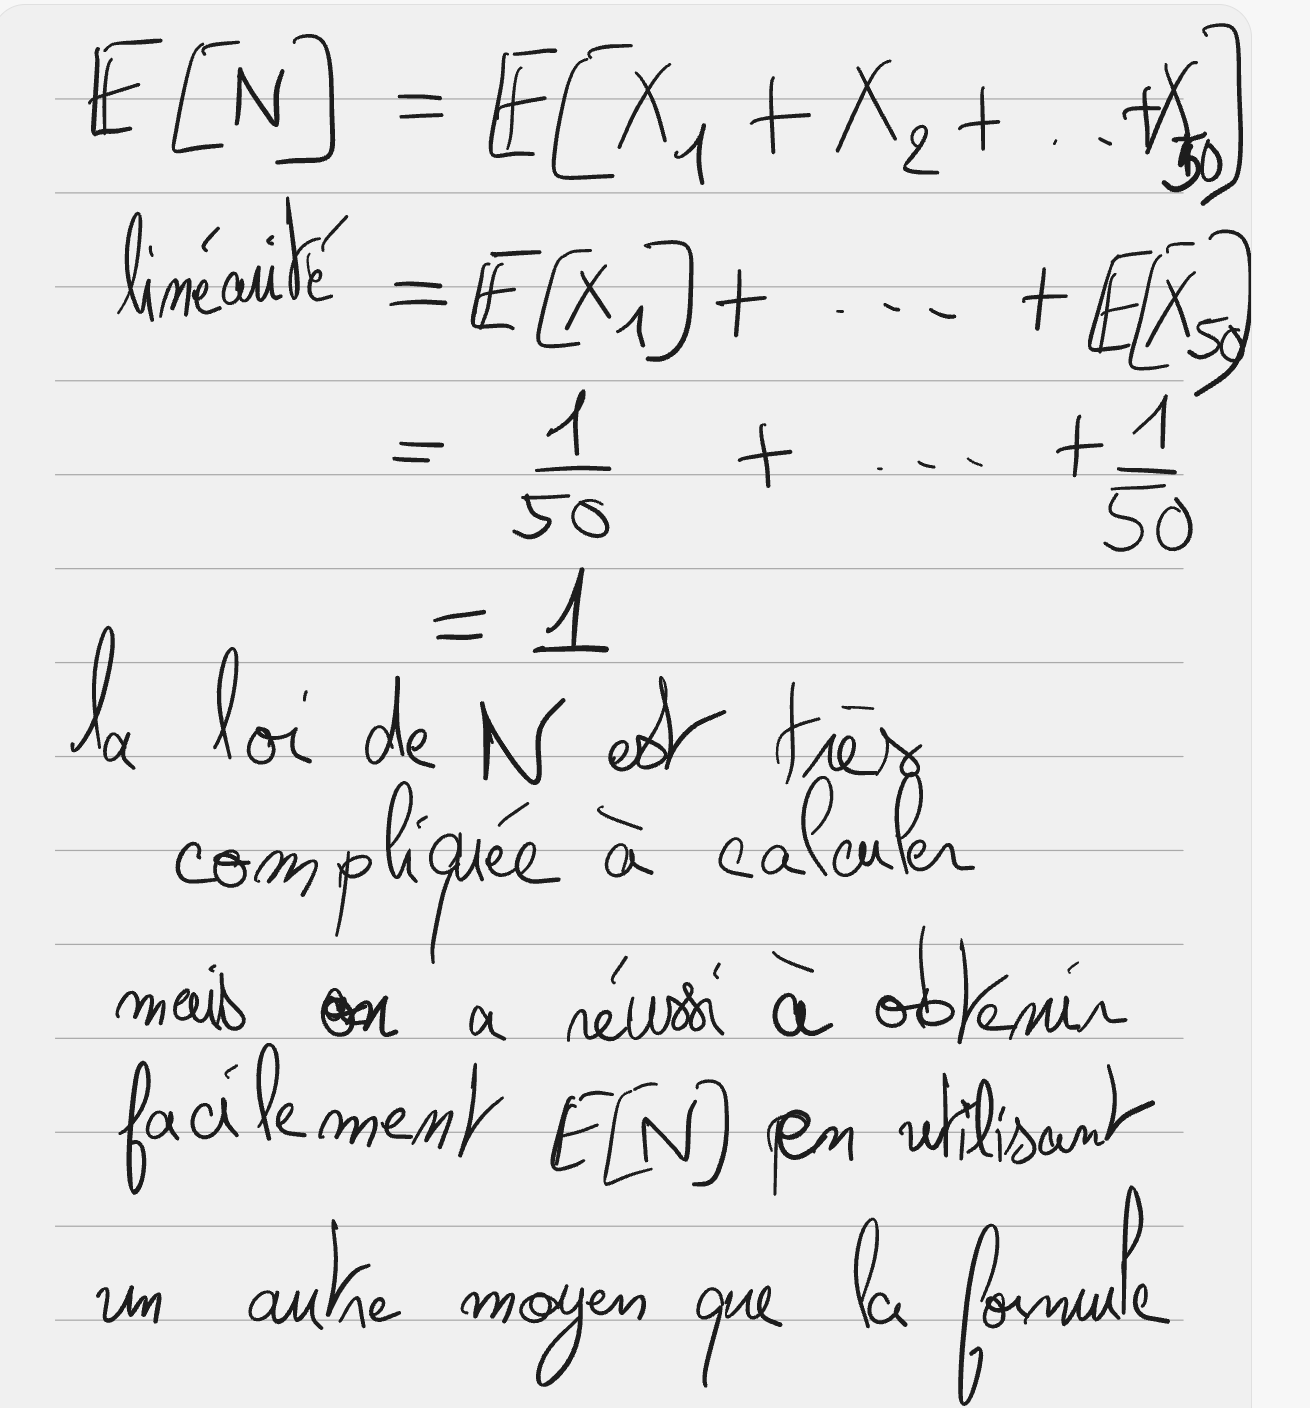 𝔼[N] = 𝔼[X₁ + X₂ + ... + X₅₀]
linéarité = 𝔼[X₁] + ... + 𝔼[X₅₀]
= 1/50 + ... + 1/50
= 1
la loi de N est très
compliquée à calculer
mais on a réussi à obtenir
facilement E[N] en utilisant
un autre moyen que la formule